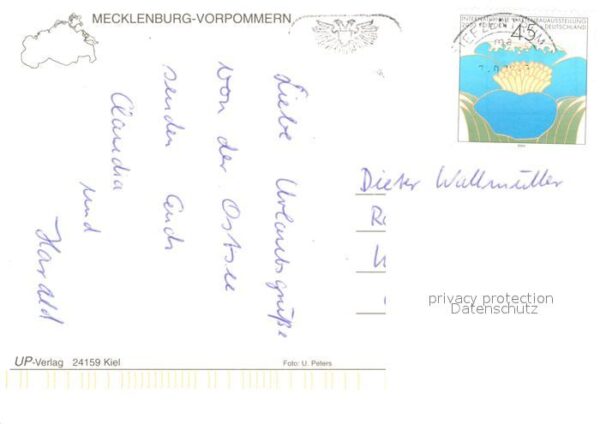 MECKLENBURG-VORPOMMERN
Liebe Urlaubsgrüße
von der Ostsee
senden Euch
Claudia
und
Harald
45
DEUTSCHLAND
Dieter Wallmüller
privacy protection
Datenschutz
UP-Verlag 24159 Kiel
Foto: U. Peters